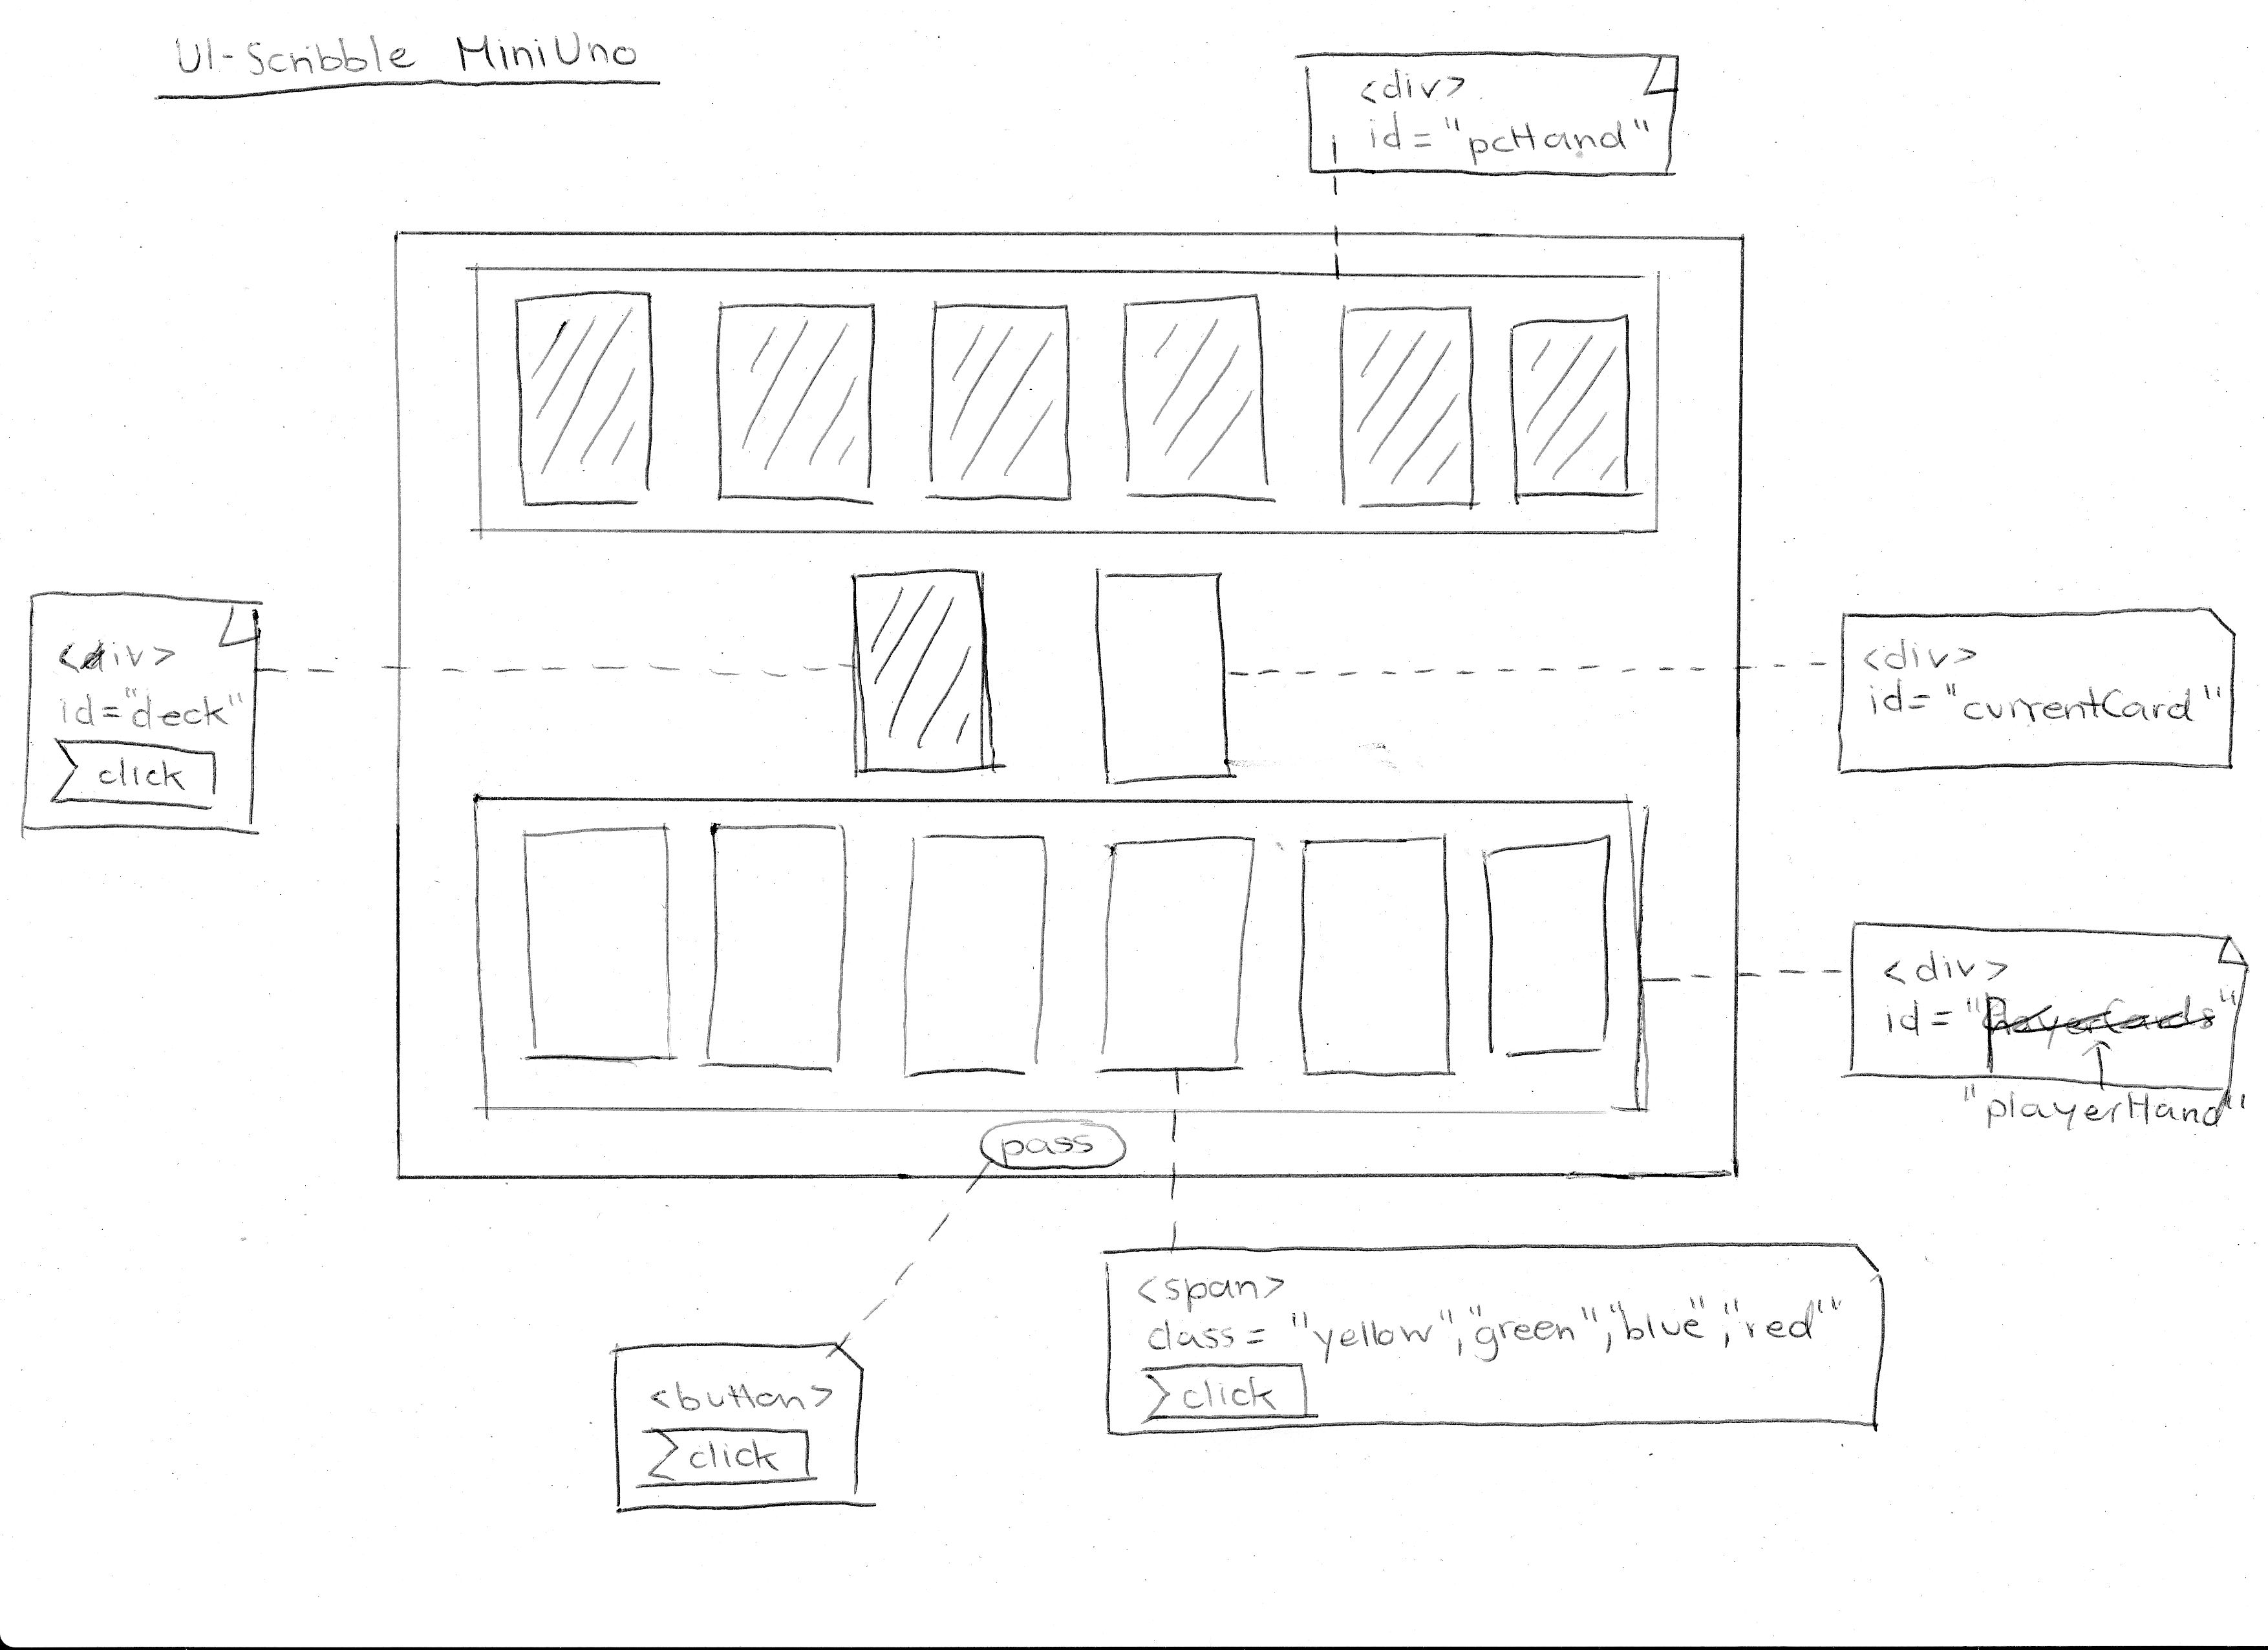 UI-Scribble MiniUno
<div>
id="pcHand"
<div>
id="deck"
click
<div>
id="currentCard"
<div>
id="playerCards"
"playerHand"
pass
<span>
class="yellow","green","blue","red"
click
<button>
click